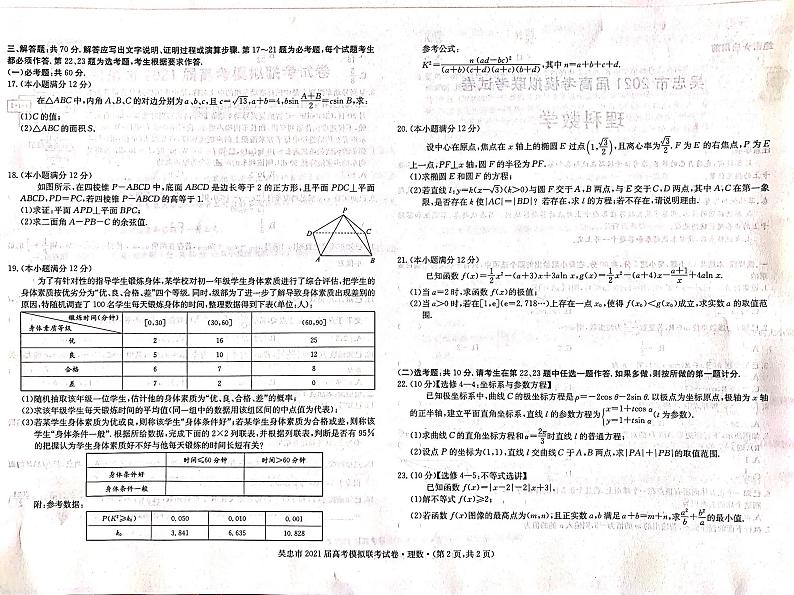 三、解答题:共 70 分. 解答应写出文字说明、证明过程或演算步骤. 第 17～21 题为必考题,每个试题考生
都必须作答. 第 22、23 题为选考题,考生根据要求作答.
(一)必考题:共 60 分.
17. (本小题满分 12 分)
在△ABC 中,内角 A、B、C 的对边分别为 a、b、c,且 c=√13,a+b=4,bsin (A+B)/2=csin B,求:
(1)C 的值;
(2)△ABC 的面积 S.
18. (本小题满分 12 分)
如图所示,在四棱锥 P－ABCD 中,底面 ABCD 是边长等于 2 的正方形,且平面 PDC⊥平面
ABCD,PD=PC,若四棱锥 P－ABCD 的高等于 1.
(1)求证:平面 APD⊥平面 BPC;
(2)求二面角 A－PB－C 的余弦值.
P
D
C
A
B
19. (本小题满分 12 分)
为了有针对性的指导学生锻炼身体,某学校对初一年级学生身体素质进行了综合评估,把学生的
身体素质按优劣分为“优、良、合格、差”四个等级. 同时,级部为了进一步了解导致身体素质出现差别的
原因,特随机调查了 100 名学生每天锻炼身体的时间,整理数据得到下表(单位:人):
锻炼时间(分钟) [0,30] (30,60] (60,90]
身体素质等级
优 2 16 25
良 5 10 12
合格 6 7 8
差 7 2 0
(1)随机抽取该年级一位学生,估计他的身体素质为“优、良、合格、差”的概率;
(2)求该年级学生每天锻炼时间的平均值(同一组中的数据用该组区间的中点值为代表);
(3)若某学生身体素质为优或良,则称该学生“身体条件好”;若某学生身体素质为合格或差,则称该
学生“身体条件一般”. 根据所给数据,完成下面的 2×2 列联表,并根据列联表,判断是否有 95%
的把握认为学生身体素质好不好与他每天锻炼的时间长短有关?
时间≤60 分钟 时间>60 分钟
身体条件好
身体条件一般
附:参考数据:
P(K²≥k₀) 0.050 0.010 0.001
k₀ 3.841 6.635 10.828
参考公式:
K²=n(ad-bc)²/((a+b)(c+d)(a+c)(b+d)),其中 n=a+b+c+d.
20. (本小题满分 12 分)
设中心在原点,焦点在 x 轴上的椭圆 E 过点(1,√3/2),且离心率为√3/2,F 为 E 的右焦点,P 为 E
上一点,PF⊥x 轴,圆 F 的半径为 PF.
(1)求椭圆 E 和圆 F 的方程;
(2)若直线 l:y=k(x－√3)(k>0)与圆 F 交于 A、B 两点,与 E 交于 C、D 两点,其中 A、C 在第一象
限,是否存在 k 使|AC|=|BD|?若存在,求 l 的方程;若不存在,请说明理由.
21. (本小题满分 12 分)
已知函数 f(x)=1/2x²－(a+3)x+3aln x,g(x)=1/2x²－(a+4)x－(a+1)/x+4aln x.
(1)当 a=2 时,求函数 f(x)的极值;
(2)当 a>0 时,若在[1,e](e=2.718⋯)上存在一点 x₀,使得 f(x₀)<g(x₀)成立,求实数 a 的取值范
围.
(二)选考题:共 10 分. 请考生在第 22、23 题中任选一题作答. 如果多做,则按所做的第一题计分.
22. (10 分)【选修 4－4:坐标系与参数方程】
已知极坐标系中,曲线 C 的极坐标方程是 ρ=－2cos θ－2sin θ. 以极点为坐标原点,极轴为 x 轴
的正半轴,建立平面直角坐标系,直线 l 的参数方程为{x=1+tcos α y=1+tsin α(t 为参数).
(1)求曲线 C 的直角坐标方程和 α=2π/3时直线 l 的普通方程;
(2)设点 P 的坐标为(1,1),直线 l 交曲线 C 于 A、B 两点,求|PA|+|PB|的取值范围.
23. (10 分)【选修 4－5:不等式选讲】
已知函数 f(x)=|x－2|－2|x+3|.
(1)解不等式 f(x)≥2;
(2)若函数 f(x)图像的最高点为(m,n),且正实数 a,b 满足 a+b=m+n,求a²/b+b²/a的最小值.
吴忠市 2021 届高考模拟联考试卷·理数·(第 2 页,共 2 页)